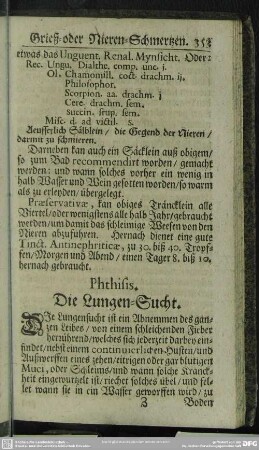 Grieß- oder Nieren-Schmertzen. 353
etwas das Unguent. Renal. Mynsicht. Oder:
Rec. Ungu. Dialth. comp. unc. j.
Ol. Chamomill. coct. drachm. ij.
Philosophor.
Scorpion. aa. drachm. j
Cere. drachm. sem.
succin. scrup. sem.
Misc. d. ad victil. s.
Aeusserlich Sälblein / die Gegend der Nieren /
darmit zu schmieren.
Darneben kan auch ein Säcklein auß obigem /
so zum Bad recommendirt worden / gemacht
werden: und wann solches vorher ein wenig in
halb Wasser und Wein gesotten worden / so warm
als zu erleyden / übergelegt.
Præservativæ, kan obiges Träncklein alle
Viertel / oder wenigstens alle halb Jahr / gebraucht
werden / um damit das schleimige Weesen von den
Nieren abzuführen. Hernach dienet eine gute
Tinct. Antinephriticæ, zu 30. biß 40. Tropf-
fen / Morgen und Abend / einen Tager 8. biß 10.
hernach gebraucht.
Phthisis.
Die Lungen-Sucht.
DJe Lungensucht ist ein Abnemmen des gan-
zen Leibes / von einem schleichenden Fieber
herrührend / welches sich jederzeit darbey ein-
findet / nebst einem continuirlichen Husten / und
Außwerffen eines zehen / eitrigen oder gar blutigen
Muci, oder Schleims / und wann solche Kranck-
heit eingewurtzelt ist / riechet solches übel / und fel-
let wann sie in ein Wasser geworffen wird / zu
Z Boden